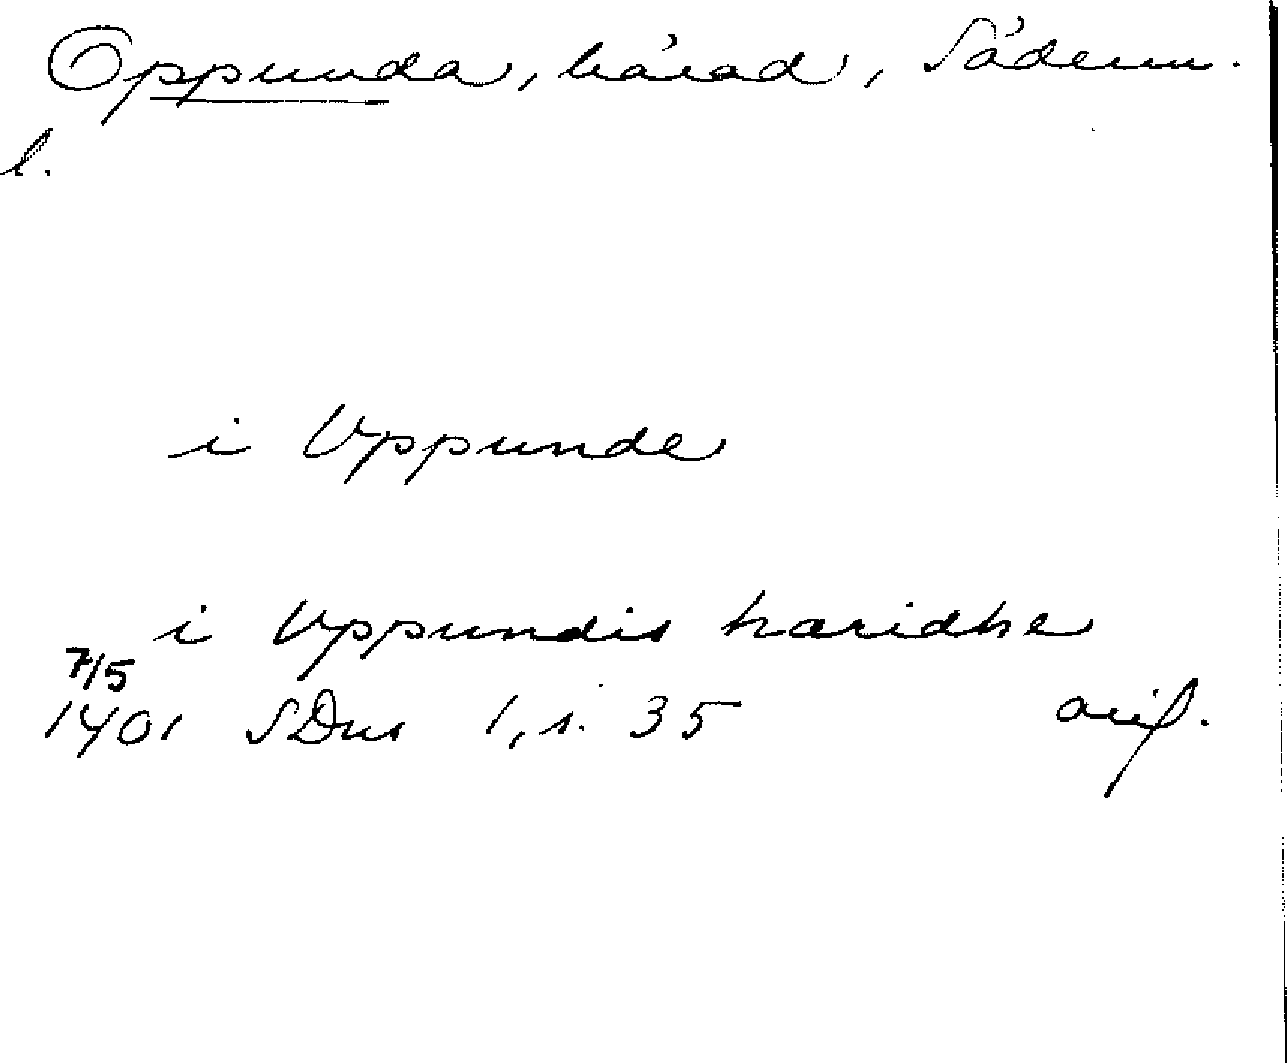 Oppunda, härad, Söderm.
l.
i Vppunde
i Vppundis haridhe
7/5
1401 SDns 1, s. 35 orig.